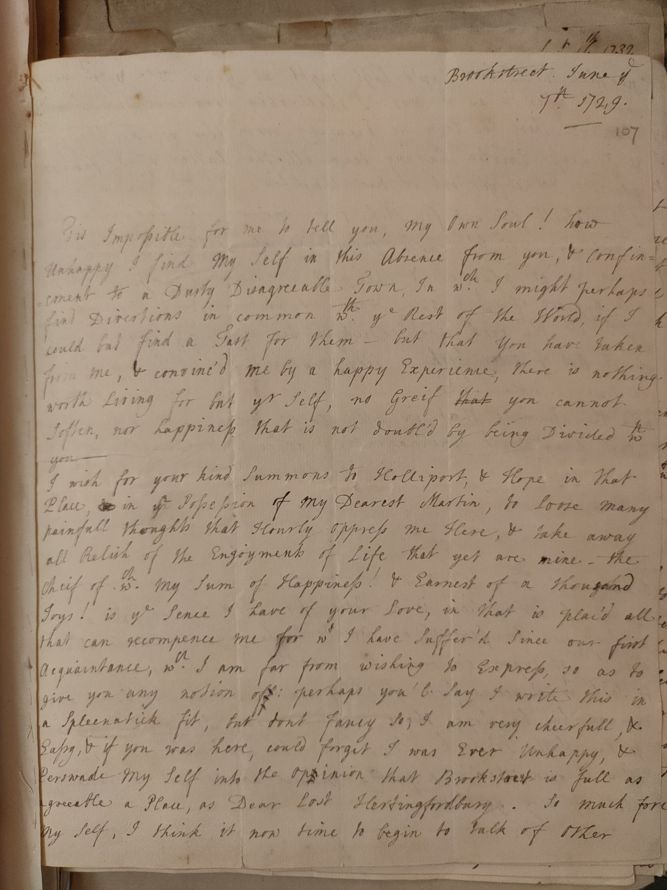 Brookstreet. June yᵉ
7ᵗʰ 1729.
107
Tis Impossible for me to tell you, My Own Soul! how
Unhappy I find My Self in this Absence from you, & Confin=
ement to a Dusty Disagreeable Town, In wᶜʰ I might perhaps
find Divertions in common wᵗʰ yᵉ Rest of the World, if I
could but find a Tast for them – but that you have taken
from me, & convinc'd me by a happy Experience, there is nothing
worth Living for but yʳ Self, no Greif that you cannot
soften, nor happiness that is not doubl'd by being Divided wᵗʰ
you —
I wish for your kind Summons to Holliport, & Hope in that
Place, & in yᵉ Possession of My Dearest Martin, to loose many
painfull thoughts that Hourly oppress me Here, & take away
all Relish of the Engoyments of Life that yet are mine – the
Cheif of wᶜʰ My Sum of Happiness! & Earnest of a thousand
Joys! is yᵉ Sence I have of your Love, in that is plac'd all
that can recompence me for wᵗ I have Suffer'd Since our first
Acquaintance, wᶜʰ I am far from wishing to Express, so as to
give you any notion off: perhaps you'l Say I write this in
a Spleenatick fit, but dont fancy so; I am very cheerfull, &
Easy, & if you was here, could forgit I was Ever Unhappy, &
Perswade My Self into the Opinion that Brookstreet is full as
agreeable a Place, as Dear Lost Hertingfordbury. So much fore
My Self, I think it now time to begin to talk of Other